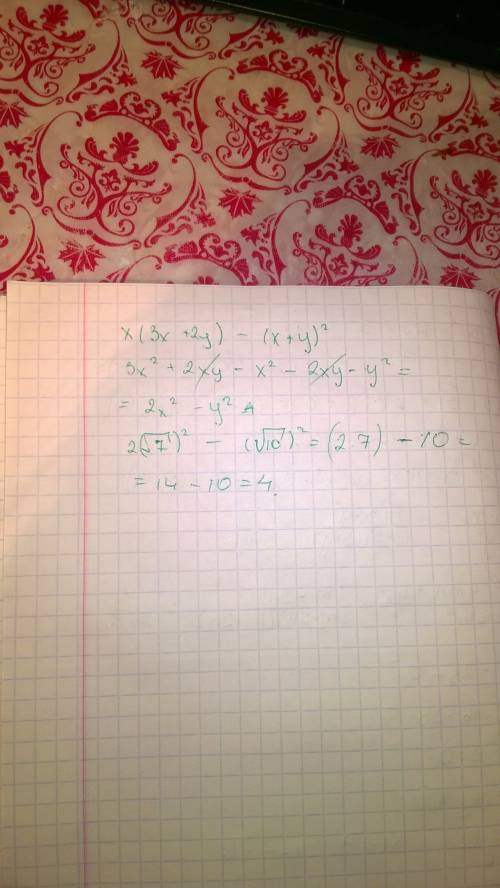 x(3x+2y) - (x+y)²
3x² + 2xy - x² - 2xy - y² =
= 2x² - y²
2(√7)² - (√10)² = (2·7) - 10 =
= 14 - 10 = 4.